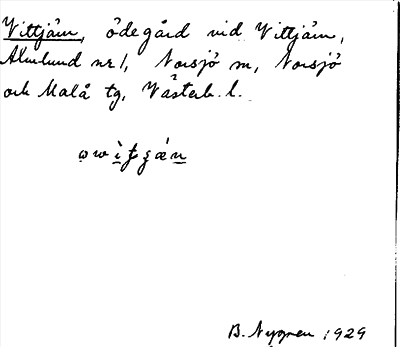 Vittjärn, ödegård vid Vittjärn,
Åmlund nr 1, Norsjö sn, Norsjö
och Malå tg, Västerb. l.
B. Nygren 1929